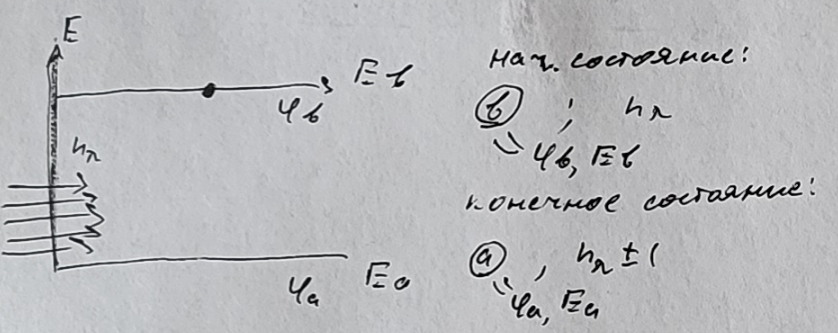 E
E в
φв
nλ
φa
Ea
нач. состояние:
в ; nλ
φв, Eв
конечное состояние:
a , nλ ± 1
φa, Ea